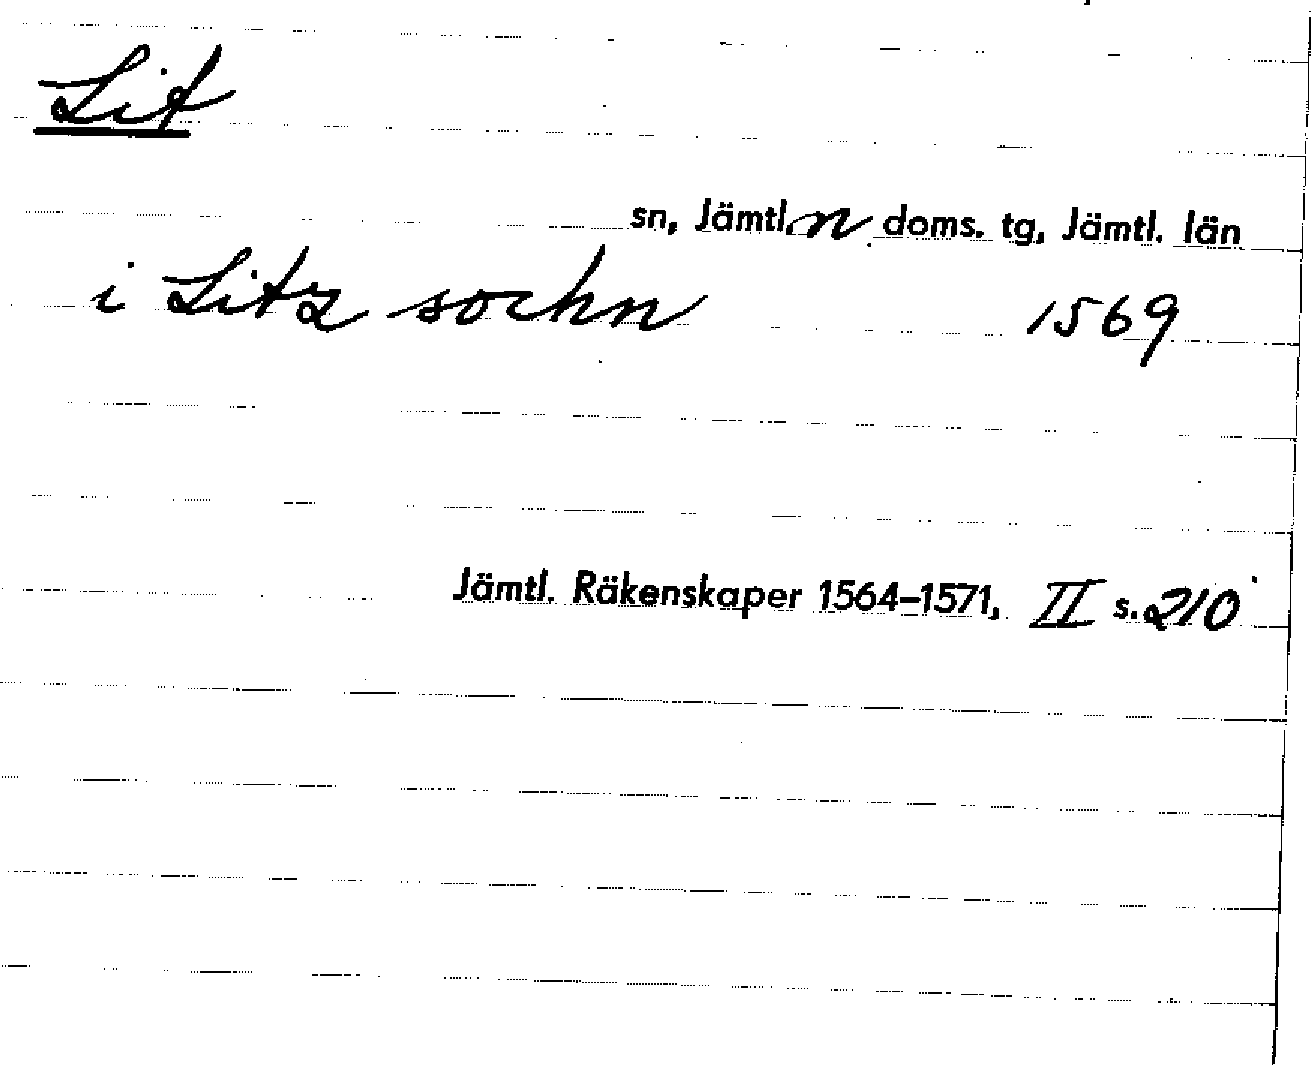 Lit
sn, Jämtl. n doms. tg, Jämtl. län
i Litz sochn 1569
Jämtl. Räkenskaper 1564–1571, II s. 210